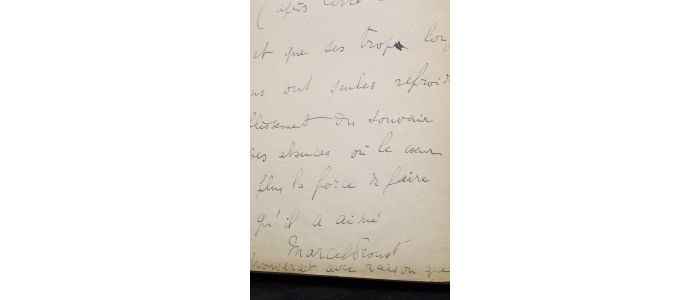 (après
et que ses trop long
ns ont seules refroidi
llissement du souvenir
des absences où le cœur
plus la force de faire
qu'il a aimé
Marcel Proust
trouverait avec raison que